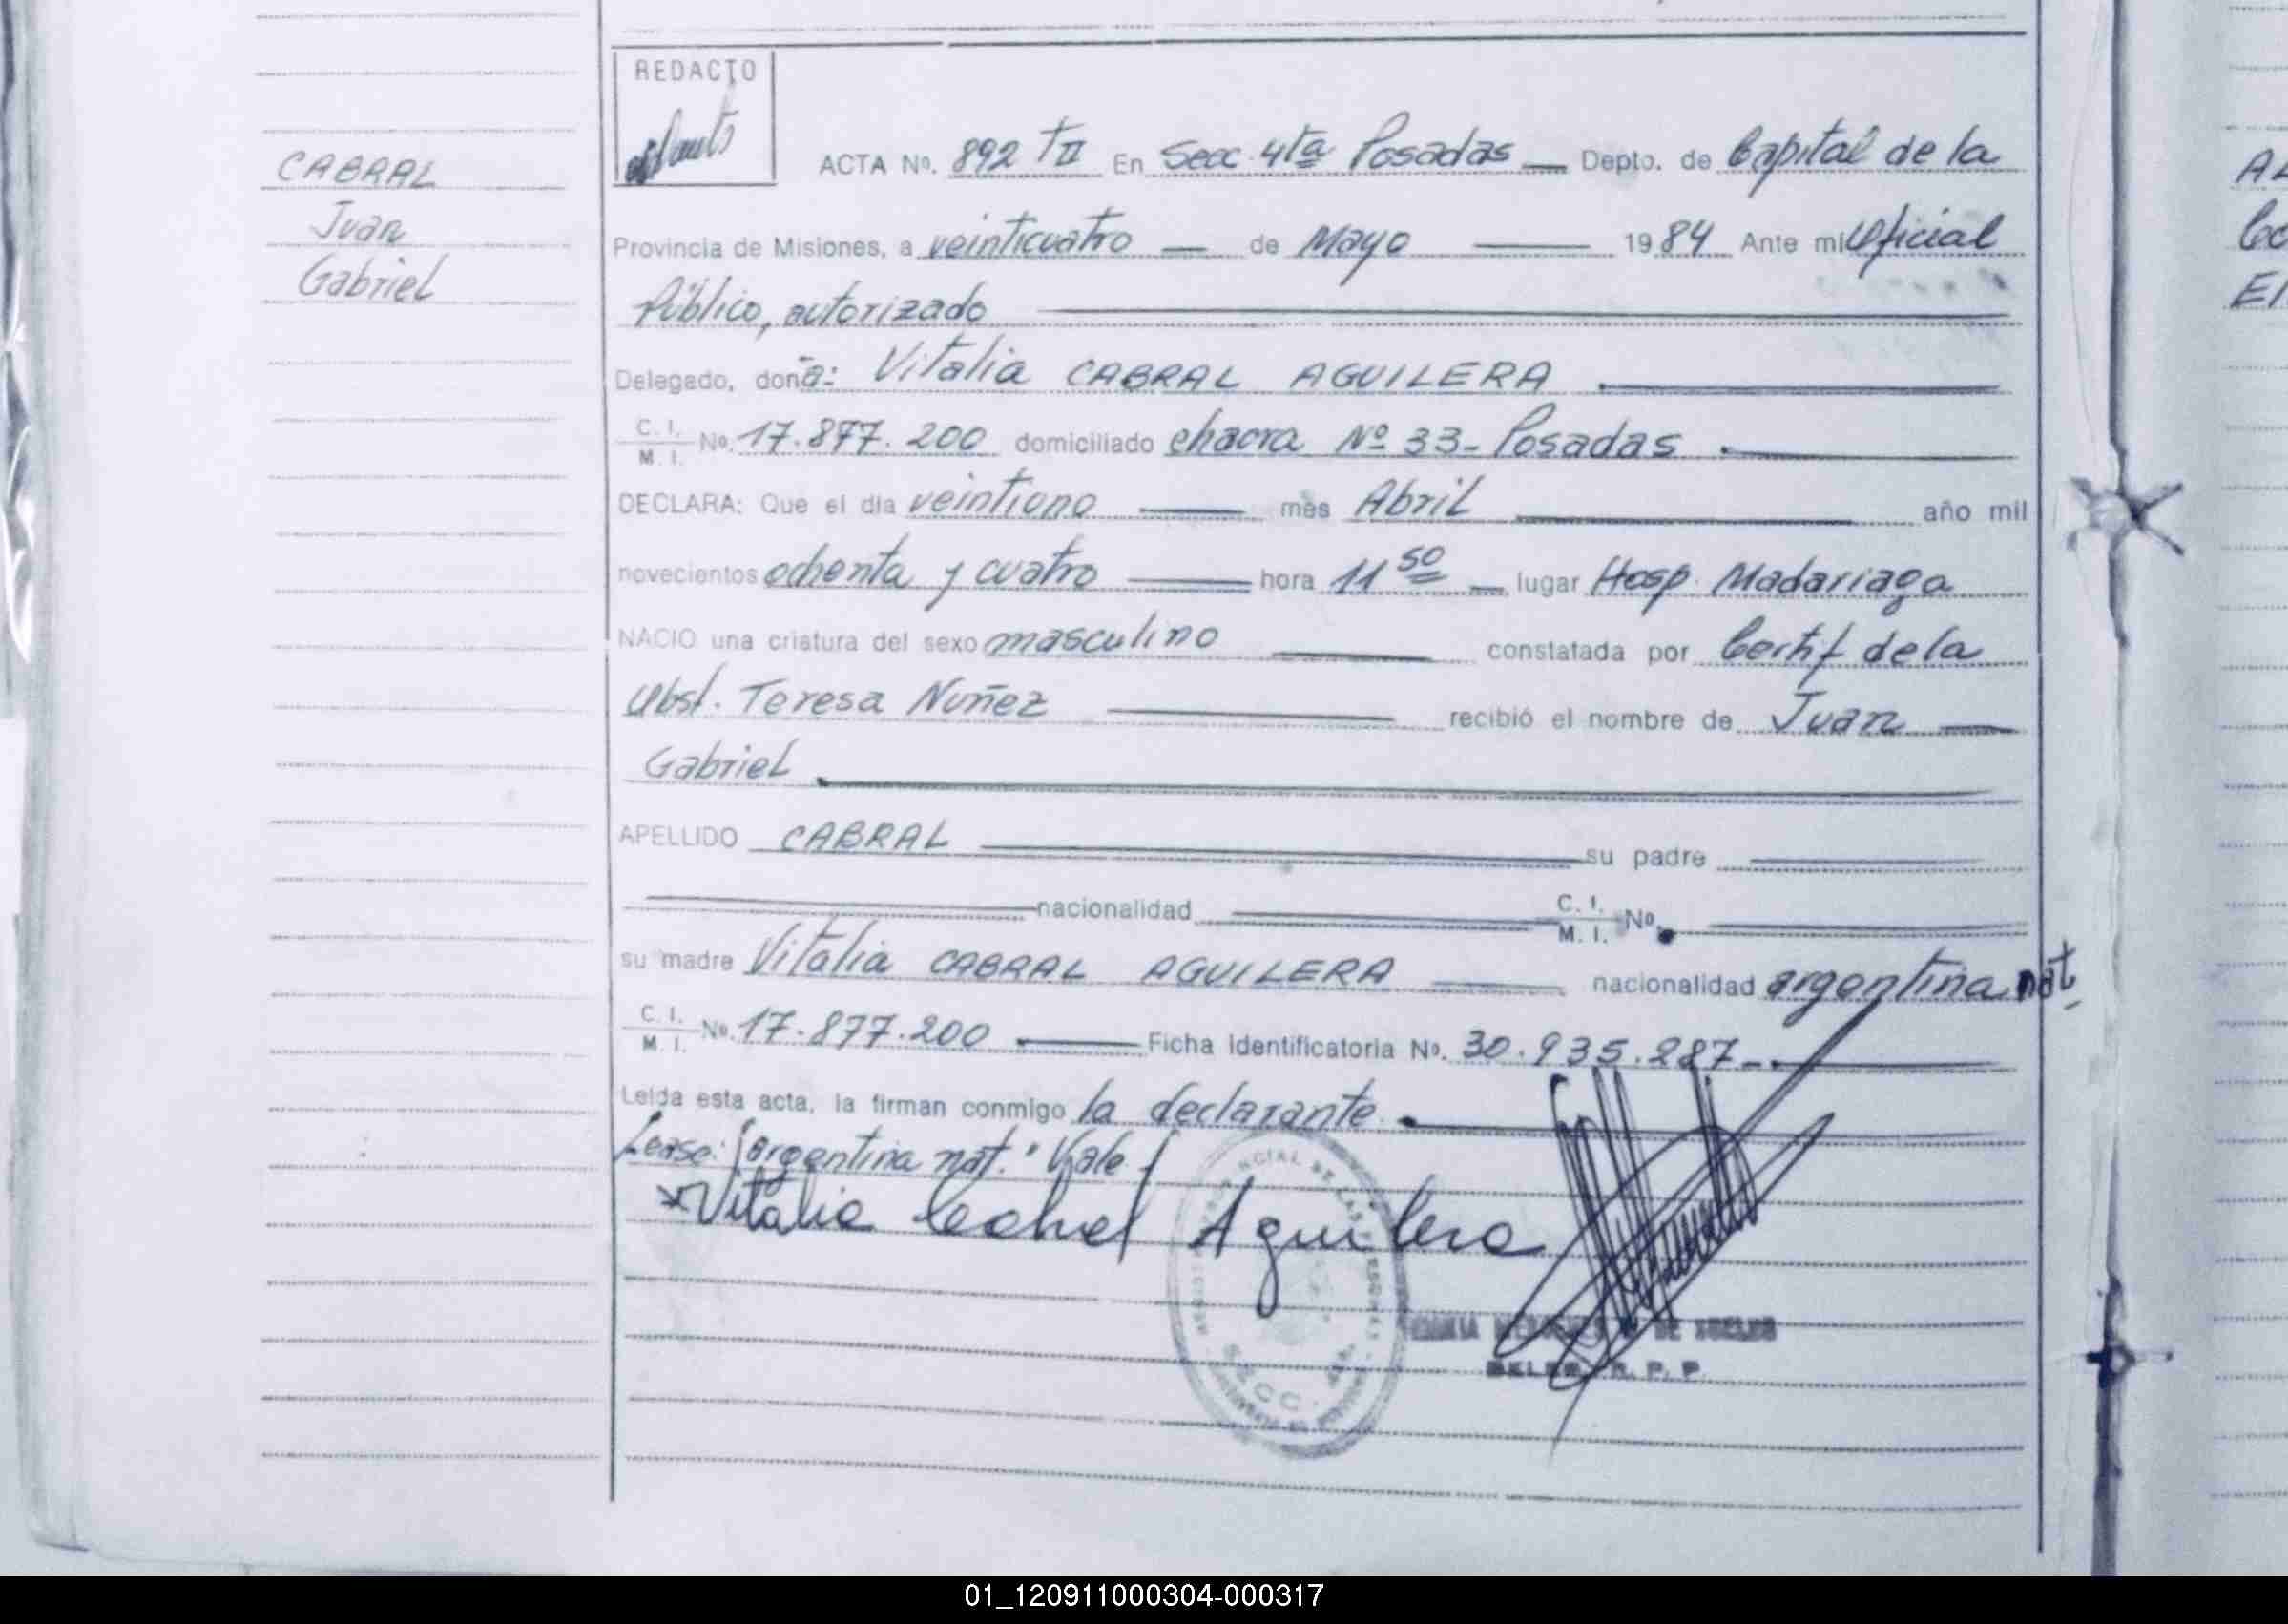 REDACTO
CABRAL
Juan
Gabriel
ACTA Nº. 892 TII En Secc. 4ta Posadas Depto. de Capital de la
Provincia de Misiones, a veinticuatro de Mayo 1984 Ante mi Oficial
Público, autorizado
Delegado, doña: Vitalia CABRAL AGUILERA
C. I. M. I. Nº. 17.877.200 domiciliado chacra Nº 33- Posadas
DECLARA: Que el día veintiuno mes Abril año mil
novecientos ochenta y cuatro hora 11 50 lugar Hosp. Madariaga
NACIO una criatura del sexo masculino constatada por Certif de la
Obst. Teresa Nuñez recibió el nombre de Juan
Gabriel
APELLIDO CABRAL su padre
nacionalidad C. I. M. I. Nº.
su madre Vitalia CABRAL AGUILERA nacionalidad argentina nat.
C. I. M. I. Nº. 17.877.200 Ficha Identificatoria Nº. 30.935.287-
Leída esta acta, la firman conmigo la declarante.
Lease: "argentina nat." Vale
Vitalia Cabral Aguilera
SECC. 4ta
R. P. P.
AL
Co
El
01_120911000304-000317